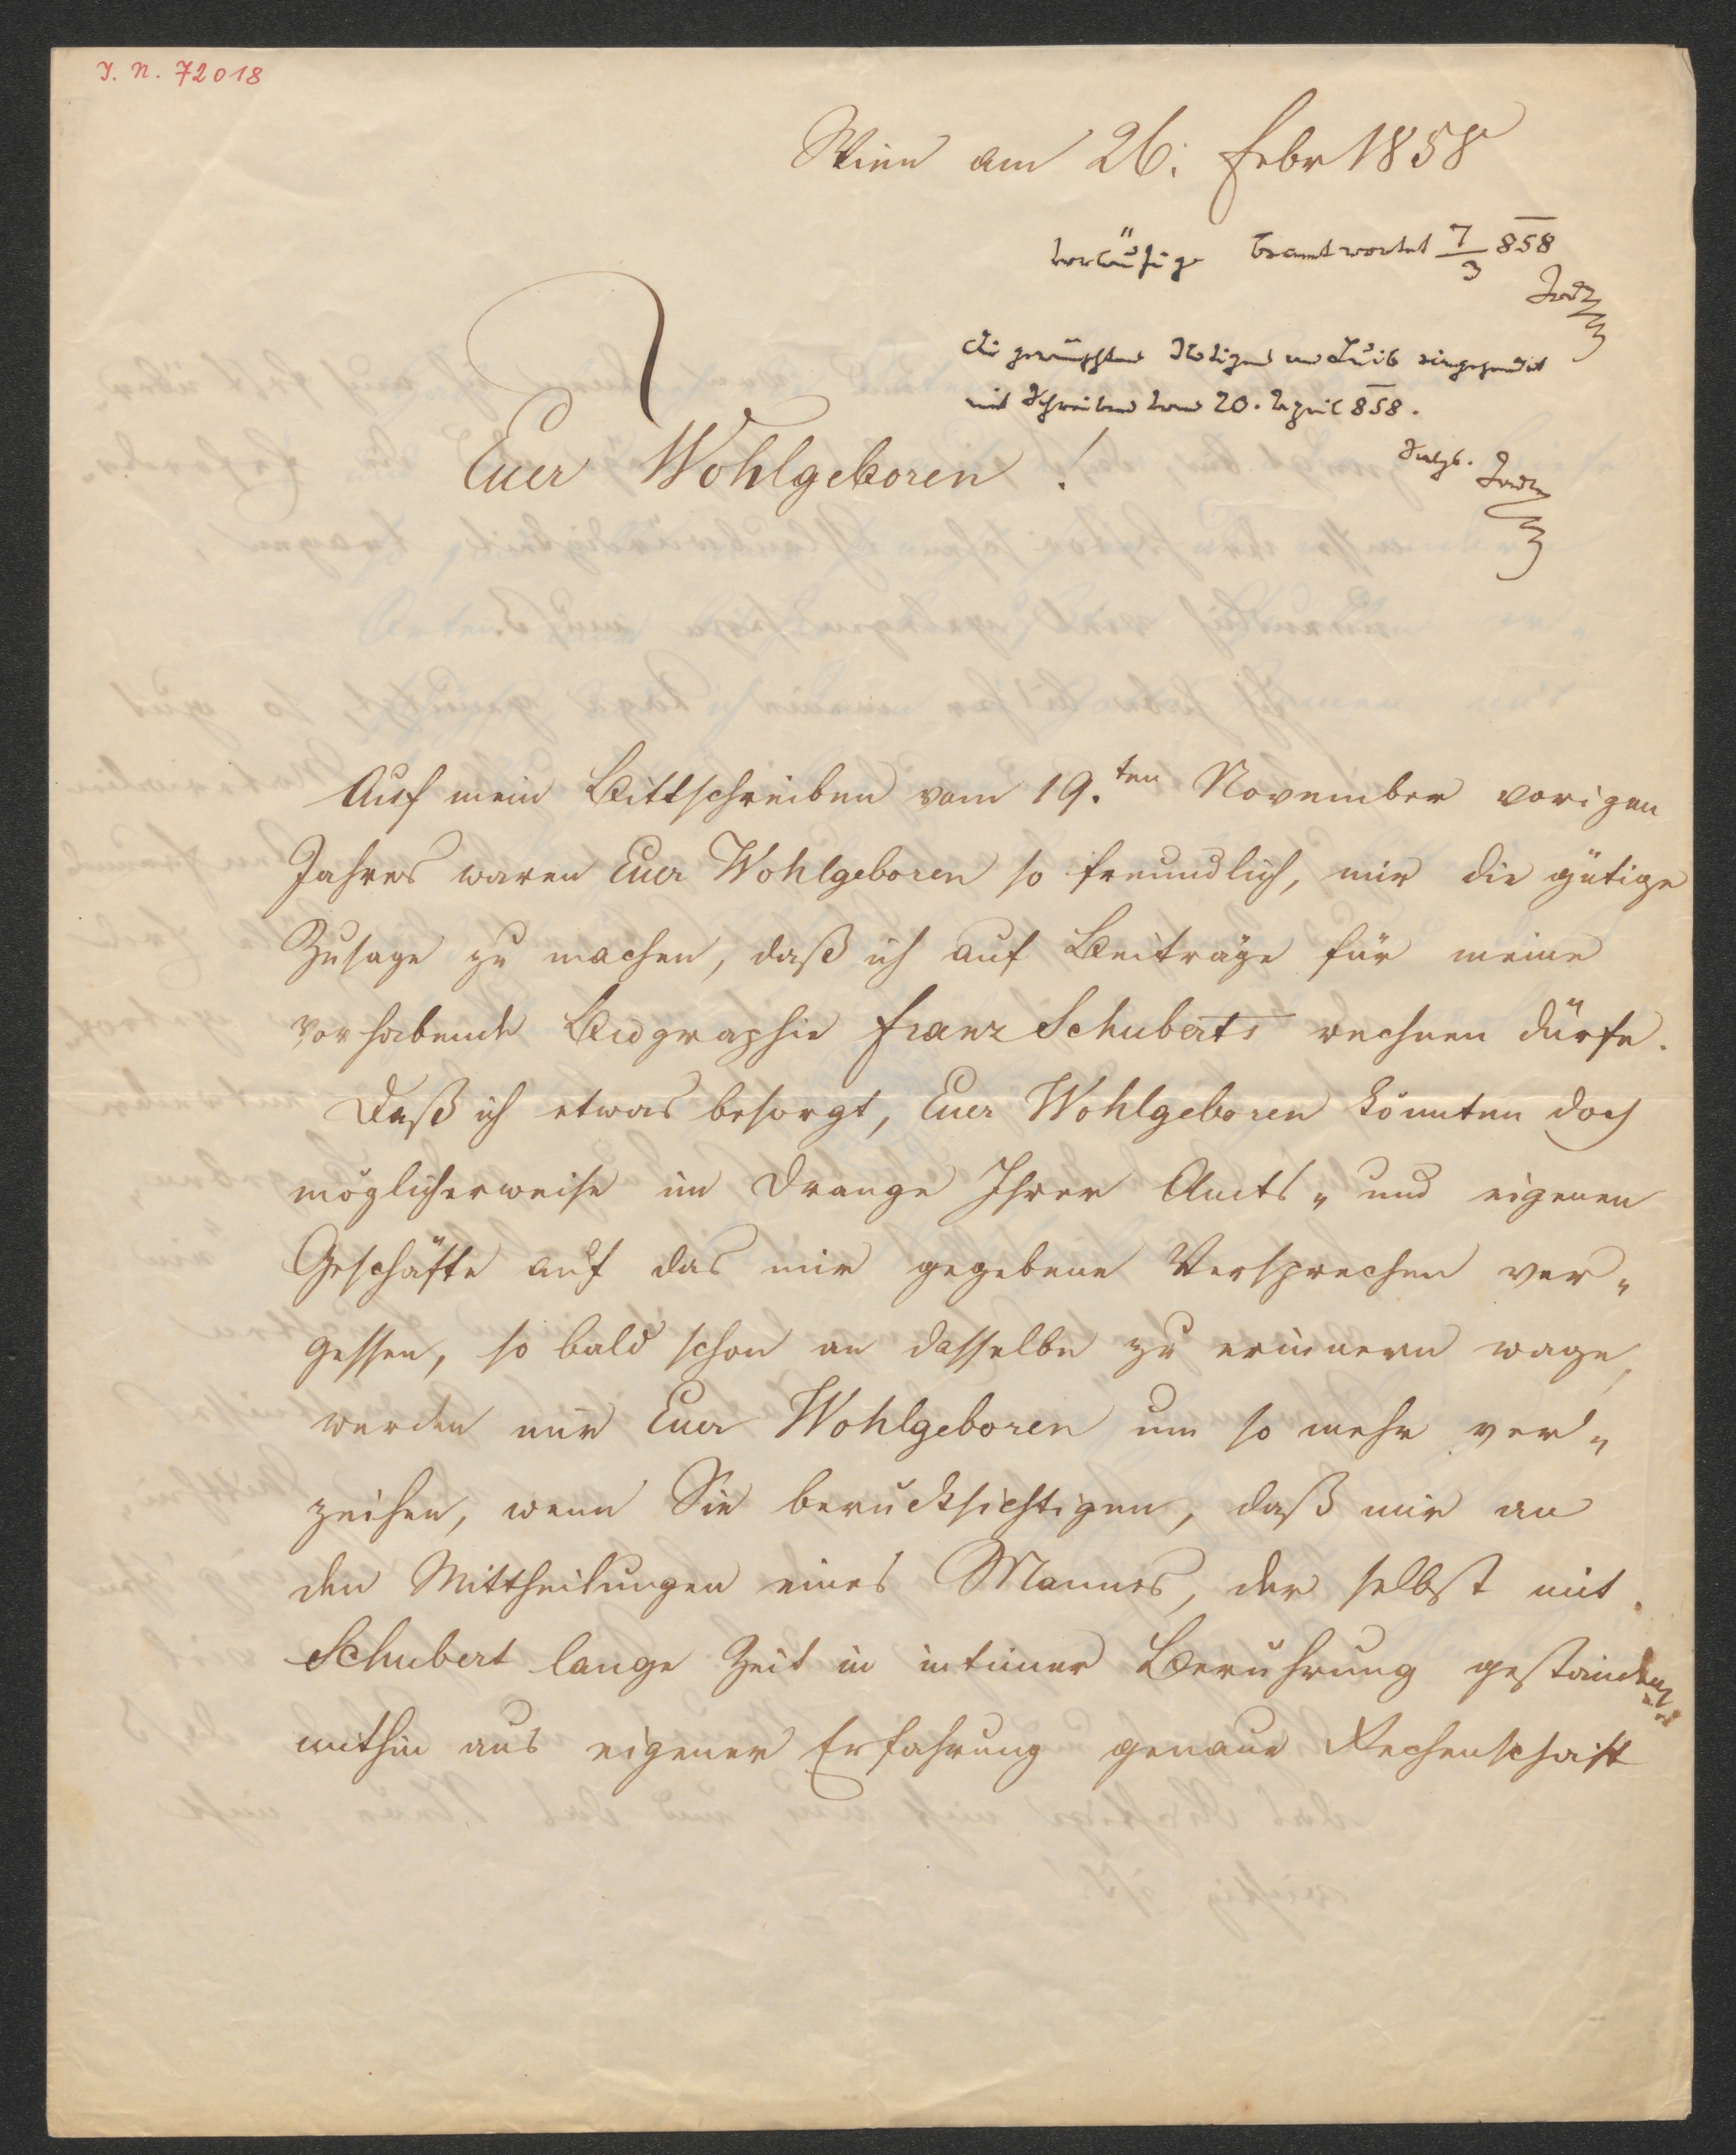 J. N. 72018
Wien am 26. Febr 1858
vorläufige beantwortet 7/3 858
die gewünschten Notizen an Luib eingesendet
mit Schreiben vom 20. April 858.
Euer Wohlgeboren!
Auf mein Bittschreiben vom 19.ten November vorigen
Jahres waren Euer Wohlgeboren so freundlich, mir die gütige
Zusage zu machen, daß ich auf Beiträge für meine
vorhabende Biographie Franz Schuberts rechnen dürfe.
Daß ich etwas besorgt, Euer Wohlgeboren könnten doch
möglicherweise im Drange Ihrer Amts- und eigenen
Geschäfte auf das mir gegebene Versprechen ver-
gessen, so bald schon an dasselbe zu erinnern wage,
werden mir Euer Wohlgeboren um so mehr ver-
zeihen, wenn Sie berücksichtigen, daß mir an
den Mittheilungen eines Mannes, der selbst mit
Schubert lange Zeit in intimer Berührung gestanden
mithin aus eigener Erfahrung genaue Rechenschaft